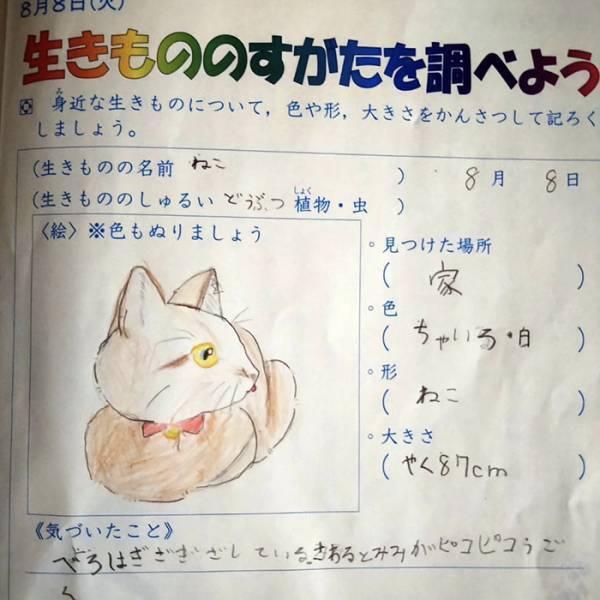 8月8日(火)
生きもののすがたを調べよう
身近な生きものについて，色や形，大きさをかんさつして記ろく
しましょう。
(生きものの名前 ねこ ) 8月 8日
(生きもののしゅるい どうぶつ 植物・虫 )
〈絵〉※色もぬりましょう
。見つけた場所
( 家 )
。色
( ちゃいろ・白 )
。形
( ねこ )
。大きさ
( やく87cm )
《気づいたこと》
べろはざざざざしている。きあるとみみがピコピコうご
く